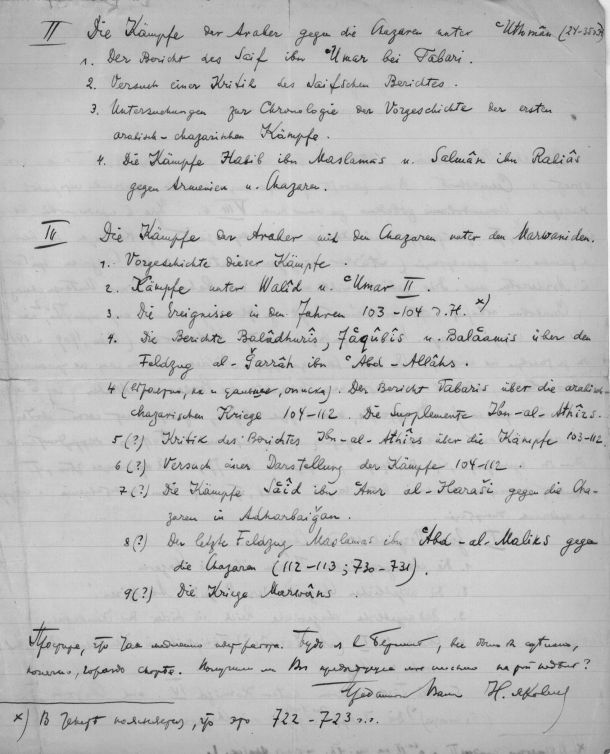 II Die Kämpfe der Araber gegen die Chazaren unter ʿUthmân (24-35 H)
1. Der Bericht des Saif ibn ʿUmar bei Tabari.
2. Versuch einer Kritik des Saifschen Berichtes.
3. Untersuchungen zur Chronologie der Vorgeschichte der ersten
arabisch-chazarischen Kämpfe.
4. Die Kämpfe Habib ibn Maslamas u. Salmân ibn Rabiâs
gegen Armenien u. Chazaren.
III Die Kämpfe der Araber mit den Chazaren unter den Marwaniden.
1. Vorgeschichte dieser Kämpfe.
2. Kämpfe unter Walîd u. ʿUmar II.
3. Die Ereignisse in den Jahren 103-104 d. H. x)
4. Die Berichte Balâdhurîs, Jaʿqûbîs u. Balʿamis über den
Feldzug al-Ǧarrâh ibn ʿAbd-Allâhs.
4 ( описка). Der Bericht Tabaris über die arabisch-
chazarischen Kriege 104-112. Die Supplemente Ibn-al-Athîrs.
5 (?) Kritik des Berichtes Ibn-al-Athîrs über die Kämpfe 103-112.
6 (?) Versuch einer Darstellung der Kämpfe 104-112.
7 (?) Die Kämpfe Saʿîd ibn ʿAmr al-Harašî gegen die Cha-
zaren in Adharbaiǧan.
8 (?) Der letzte Feldzug Maslamas ibn ʿAbd-al-Maliks gegen
die Chazaren (112-113; 730-731).
9 (?) Die Kriege Marwâns.
что
конечно, гораздо скорее. Получили ли Вы письмо
Преданный Вам Н. Яковлев
x) В поясняется, что это 722-723 г.г.